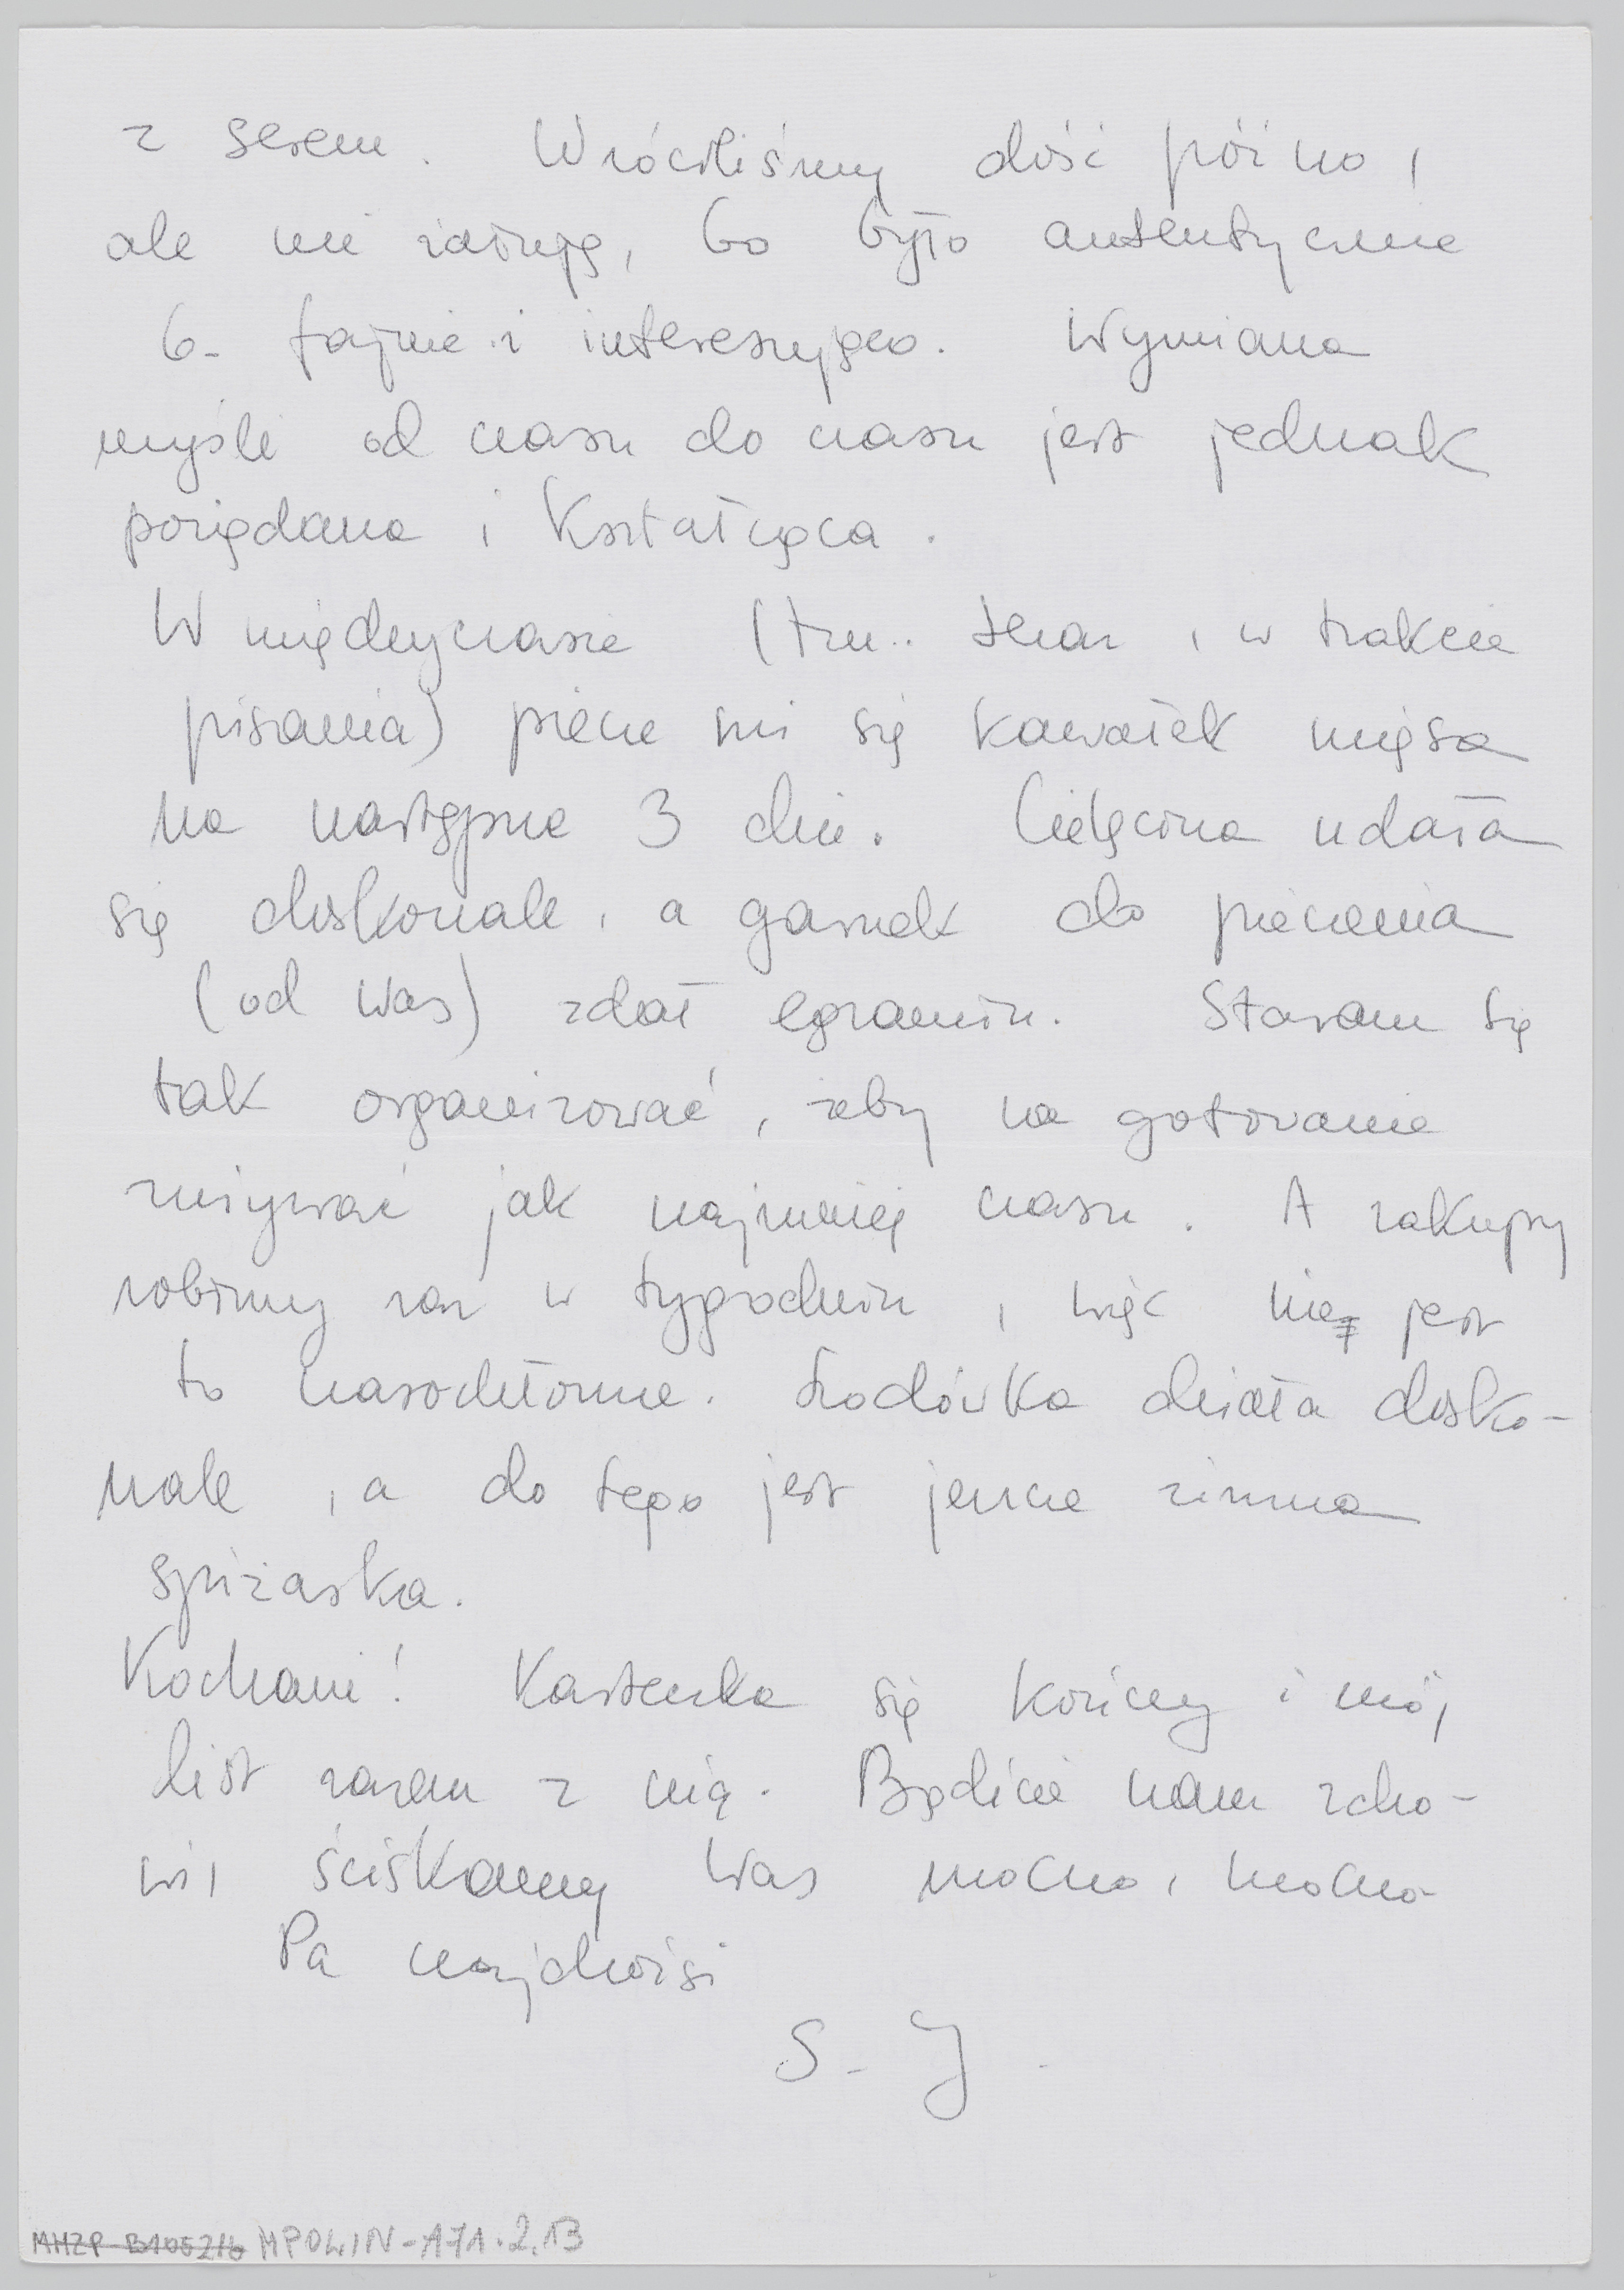 z serem. Wróciliśmy dość późno,
ale nie żałuję, bo było autentycznie
b. fajnie i interesująco. Wymiana
myśli od czasu do czasu jest jednak
pożądana i kształcąca.
W międzyczasie (tzn.. teraz, w trakcie
pisania) piecze mi się kawałek mięsa
na następne 3 dni. Cielęcina udała
się doskonale, a garnek do pieczenia
(od Was) zdał egzamin. Staram się
tak organizować, żeby na gotowanie
zużywać jak najmniej czasu. A zakupy
robimy raz w tygodniu, więc nie jest
to czasochłonne. Lodówka działa dosko-
nale, a do tego jest jeszcze zimna
spiżarka.
Kochani! Karteczka się kończy i mój
list razem z nią. Bądźcie nam zdro-
wi, ściskamy Was mocno, mocno
Pa najdrożsi
S. J.
MHZP-B1052/6 MPOLIN-A71.2.13